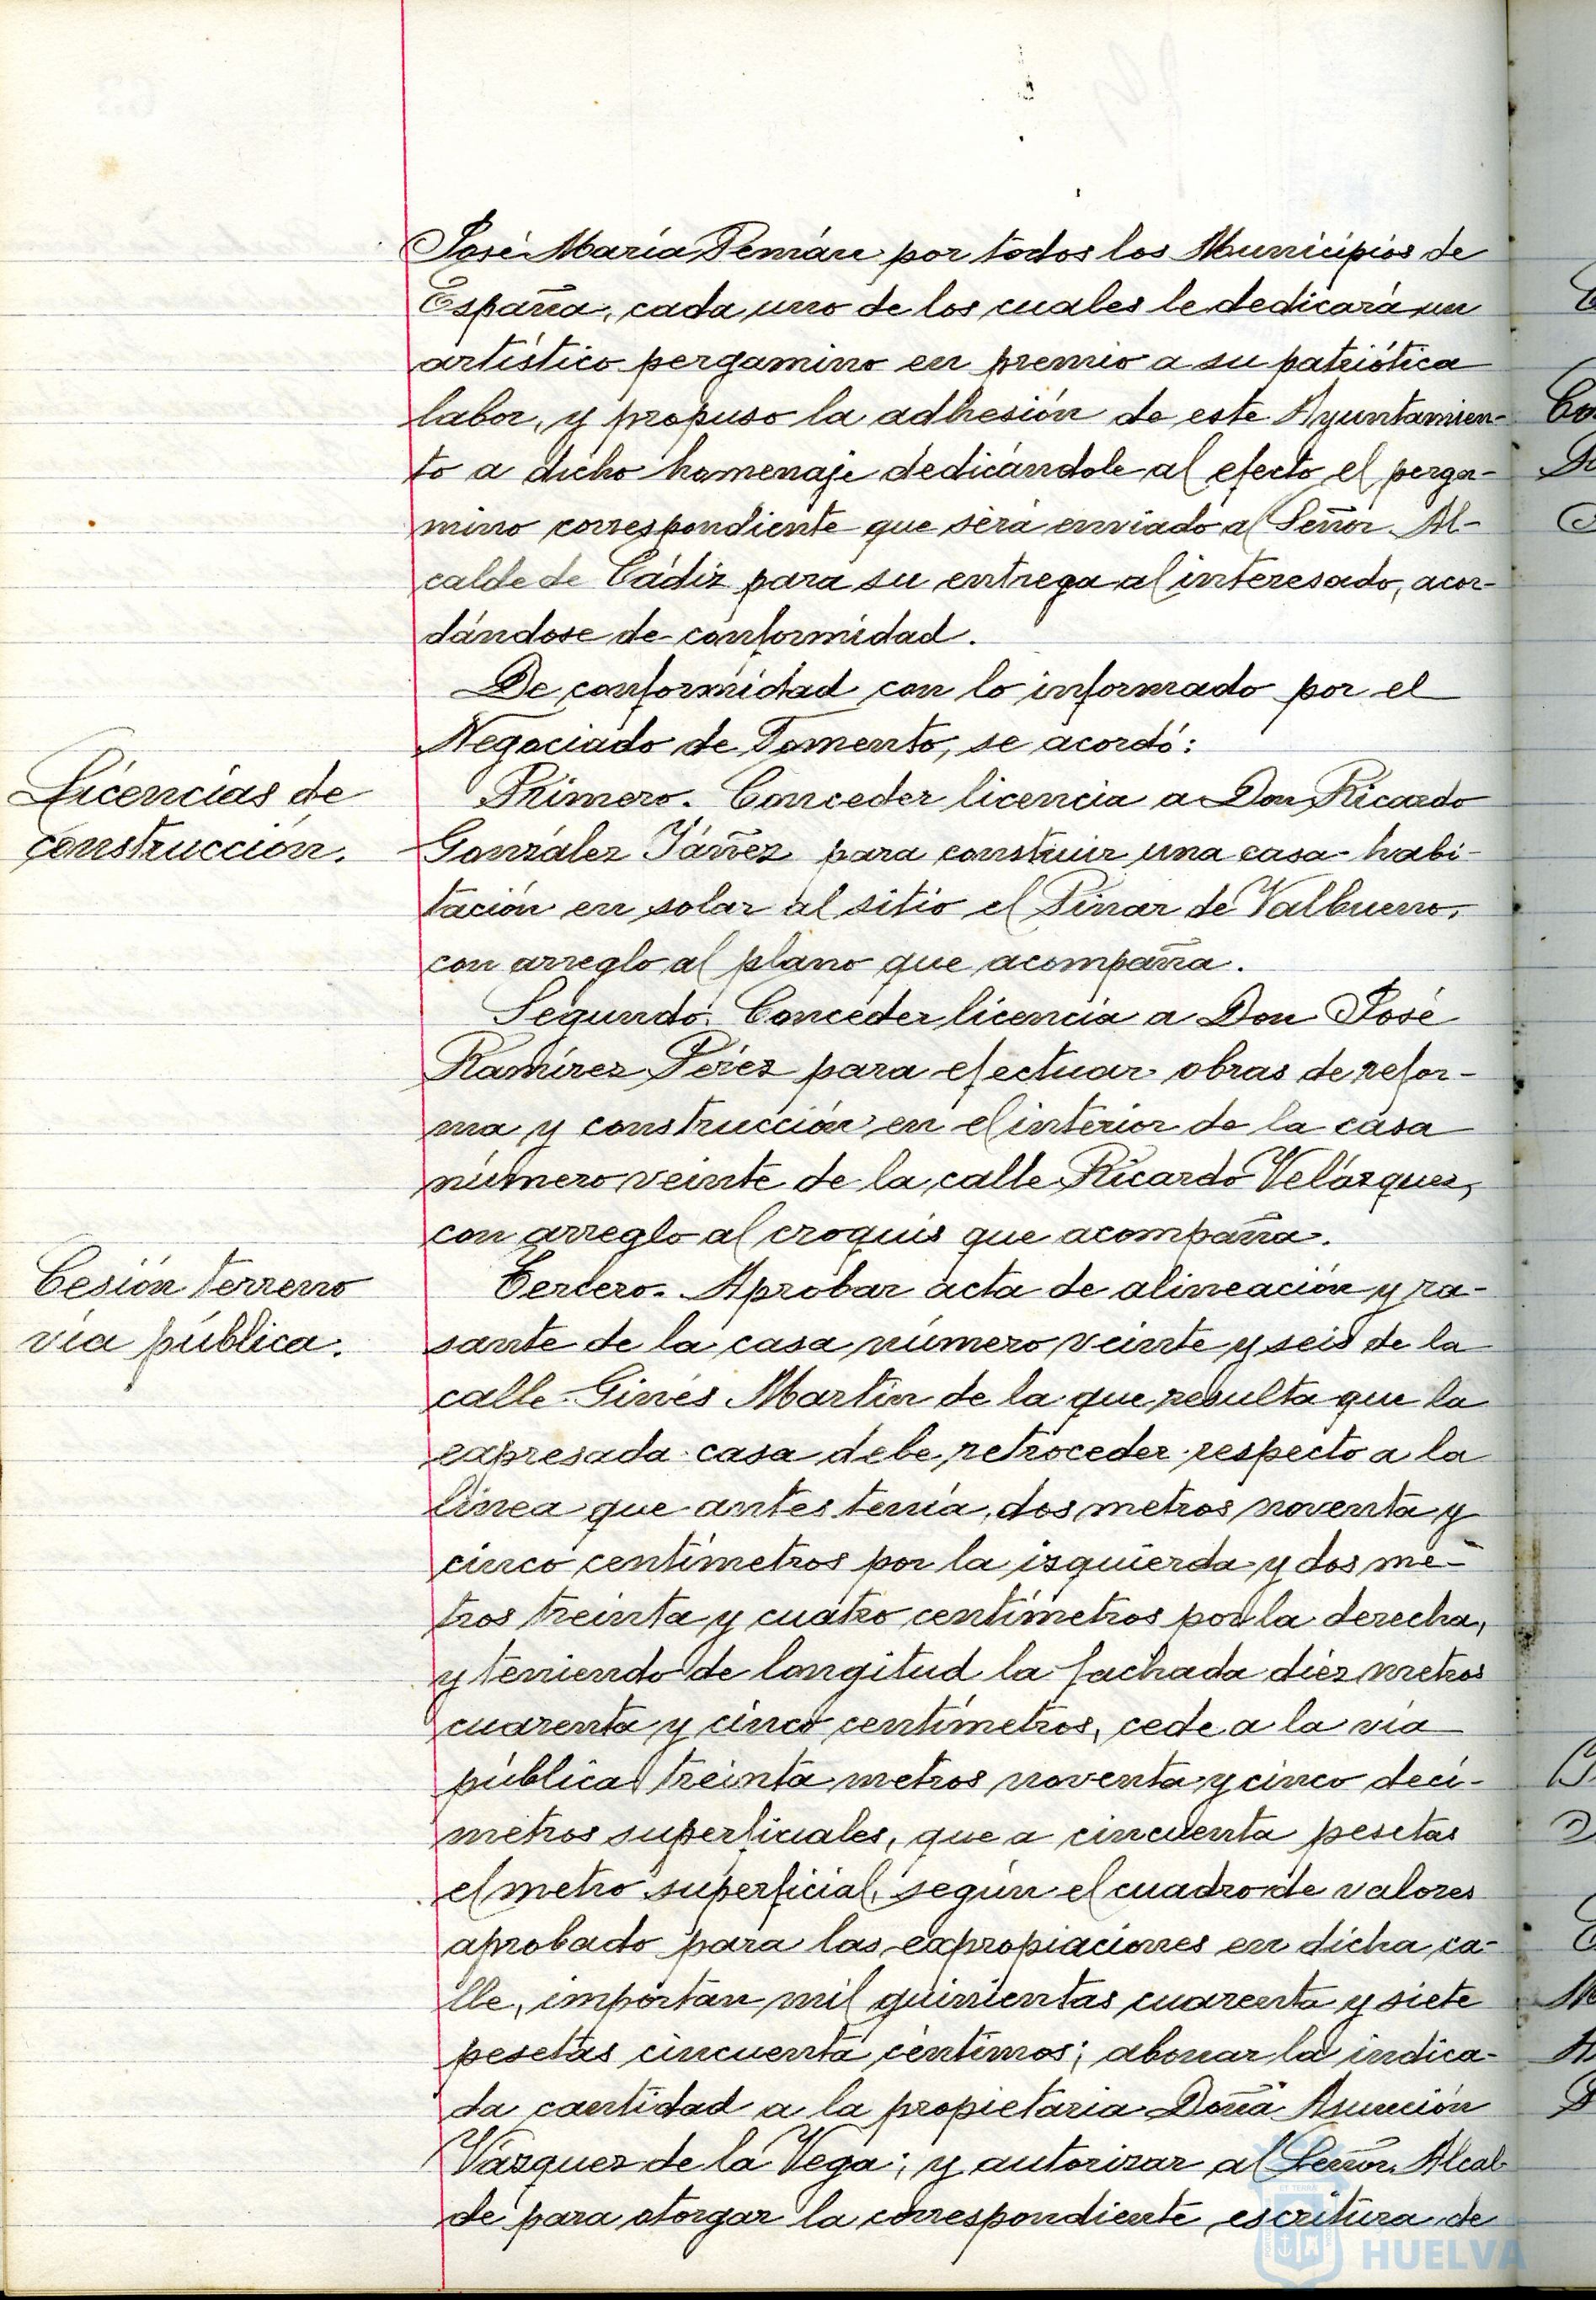 José María Pemán por todos los Municipios de
España, cada uno de los cuales le dedicará un
artístico pergamino en premio a su patriótica
labor, y propuso la adhesión de este Ayuntamien-
to a dicho homenaje dedicándole al efecto el perga-
mino correspondiente que será enviado al Señor Al-
calde de Cádiz para su entrega al interesado, acor-
dándose de conformidad.
De conformidad con lo informado por el
Negociado de Fomento, se acordó:
Licencias de
construcción.
Primero. Conceder licencia a Don Ricardo
González Yáñez para construir una casa-habi-
tación en solar al sitio el Pinar de Valbueno,
con arreglo al plano que acompaña.
Segundo. Conceder licencia a Don José
Ramírez Pérez para efectuar obras de refor-
ma y construcción en el interior de la casa
número veinte de la calle Ricardo Velázquez,
con arreglo al croquis que acompaña.
Cesión terreno
vía pública.
Tercero. Aprobar acta de alineación y ra-
sante de la casa número veinte y seis de la
calle Ginés Martín de la que resulta que la
expresada casa debe retroceder respecto a la
línea que antes tenía, dos metros noventa y
cinco centímetros por la izquierda y dos me-
tros treinta y cuatro centímetros por la derecha,
y teniendo de longitud la fachada diez metros
cuarenta y cinco centímetros, cede a la vía
pública treinta metros noventa y cinco decí-
metros superficiales, que a cincuenta pesetas
el metro superficial, según el cuadro de valores
aprobado para las expropiaciones en dicha ca-
lle, importan mil quinientas cuarenta y siete
pesetas cincuenta céntimos; abonar la indica-
da cantidad a la propietaria Doña Asunción
Vázquez de la Vega; y autorizar al Señor Alcal-
de para otorgar la correspondiente escritura de
HUELVA